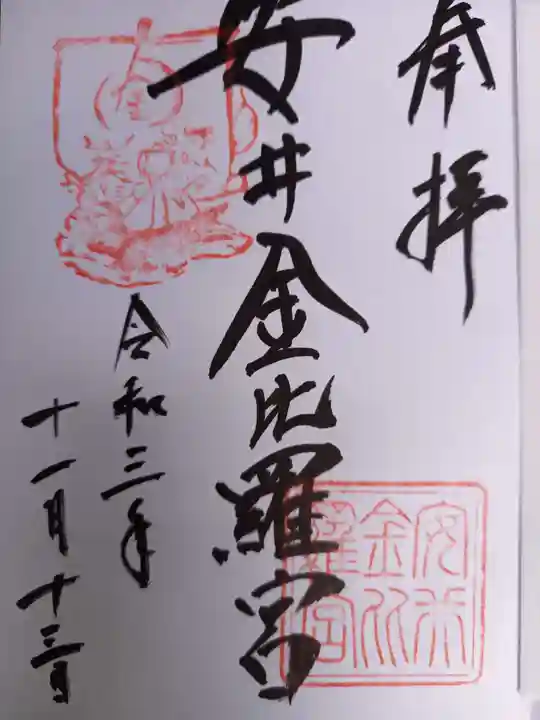 奉拝
安井金比羅宮
令和三年
十一月十三日
安井金比羅宮